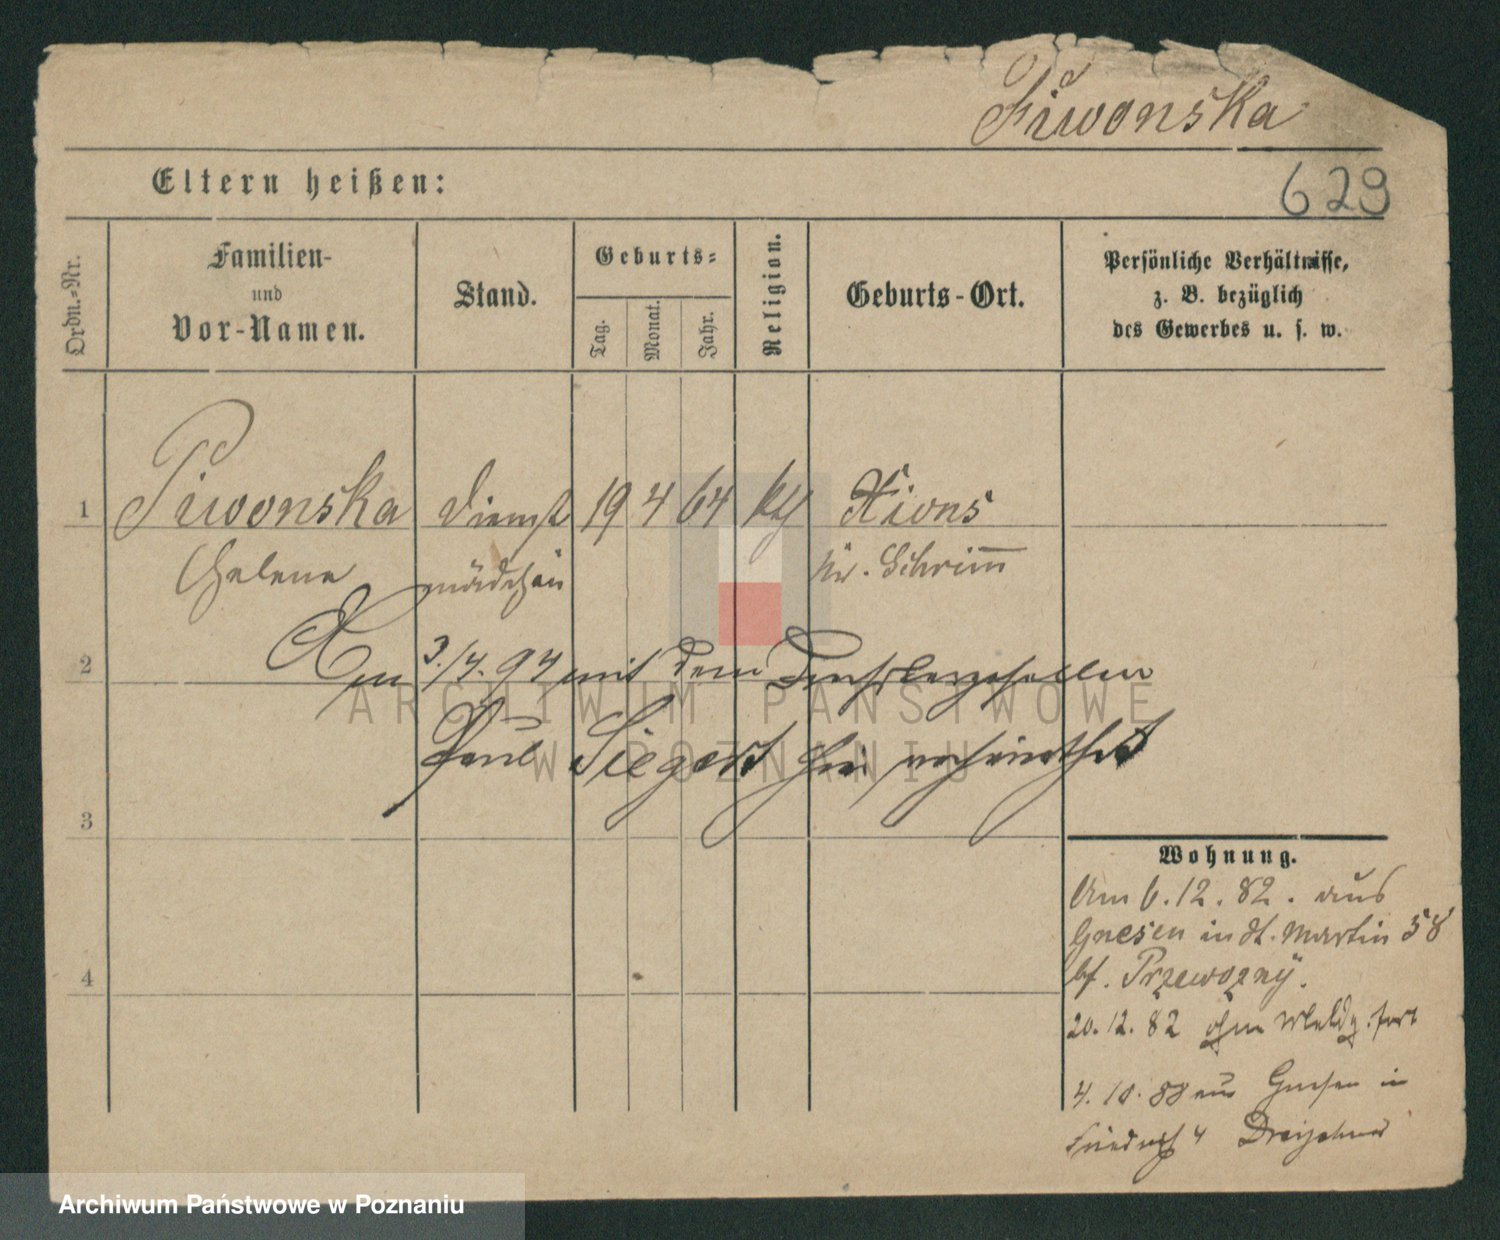 Piwonska
Eltern heißen:
629
Ordn.-Nr.
Familien-
und
Vor-Namen.
Stand.
Geburts-
Tag.
Monat.
Jahr.
Religion.
Geburts-Ort.
Persönliche Verhältnisse,
z. B. bezüglich
des Gewerbes u. s. w.
1 Piwonska Dienst 19 4 64 kth Xions
Helene mädchen Kr. Schrimm
2
Am 3./4. 94 mit dem
Paul Siegert hier verheirathet
3
Wohnung.
Am 6.12.82. aus
Gnesen in St. Martin 58
bf. Przewozny.
4
20.12.82 ohne Meldg. fort
4.10.88 aus Gnesen in
4
ARCHIWUM PAŃSTWOWE
W POZNANIU
Archiwum Państwowe w Poznaniu